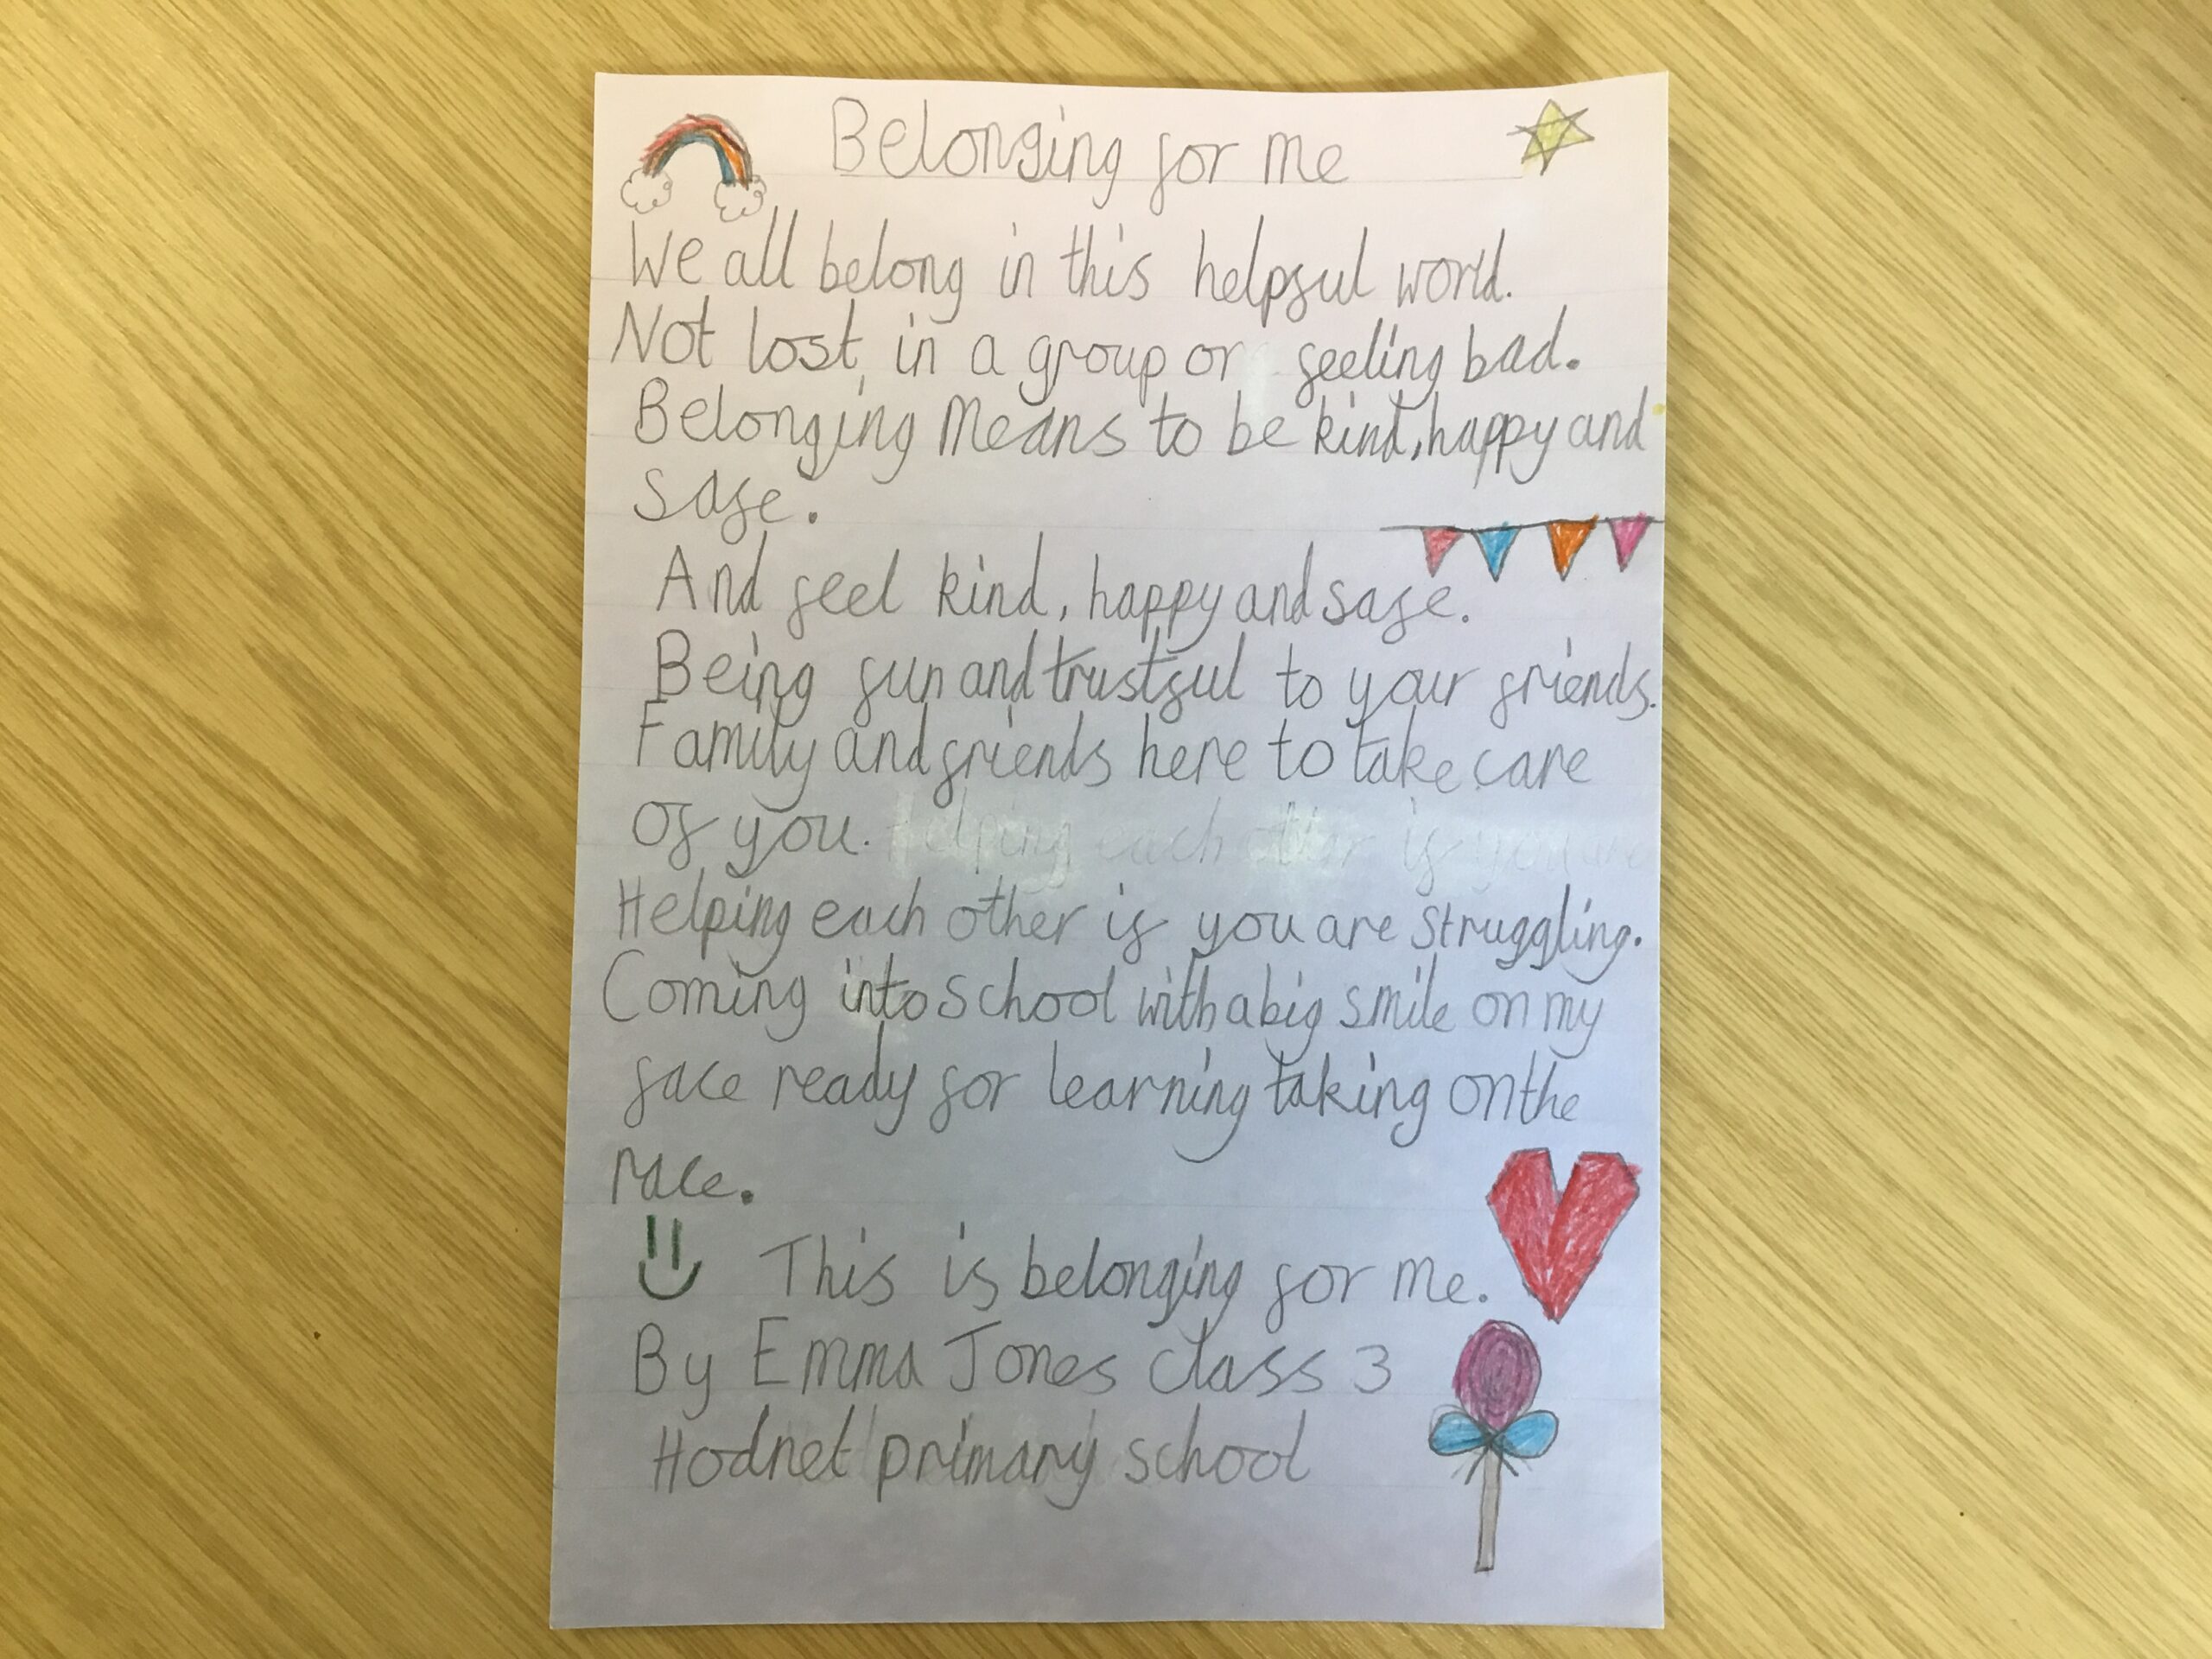 Belonging for me
We all belong in this helpful world.
Not lost in a group or feeling bad.
Belonging Means to be kind, happy and
safe.
And feel kind, happy and safe.
Being fun and trustful to your friends.
Family and friends here to take care
of you. Helping each other if you are
Helping each other if you are struggling.
Coming into school with a big smile on my
face ready for learning taking on the
race.
This is belonging for me.
By Emma Jones class 3
Hodnet primary school